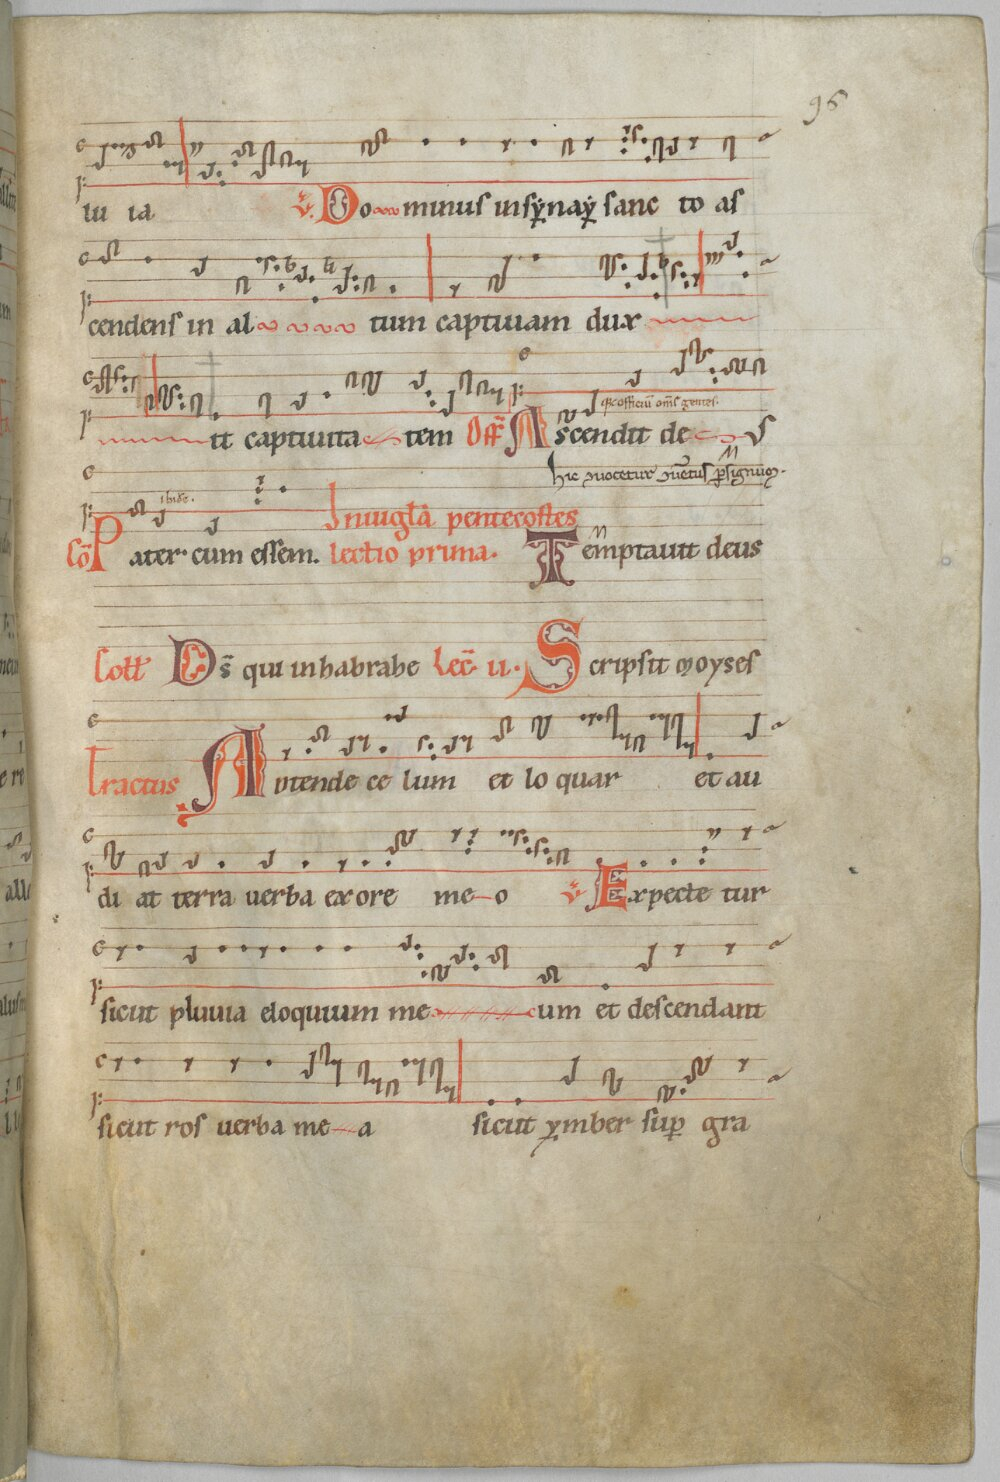 96
lu ia ℣. Dominus in sẏnaẏ sanc to as
cendens in al tum captiuam dux
it captiuita tem Off̄ Ascendit de S
hic
ibidē.
In uigl̄a pentecostes
Cō Pater cum essem. lectio prima. Temptauit deus
Coll̄ Ds̄ qui inhabrahe Lec̄ ii. Scripsit moyses
Tractus Attende ce lum et lo quar et au
di at terra uerba ex ore me o ℣ Expecte tur
sicut pluuia eloquium me um et descendant
sicut ros uerba me a sicut ẏmber sup̄ gra